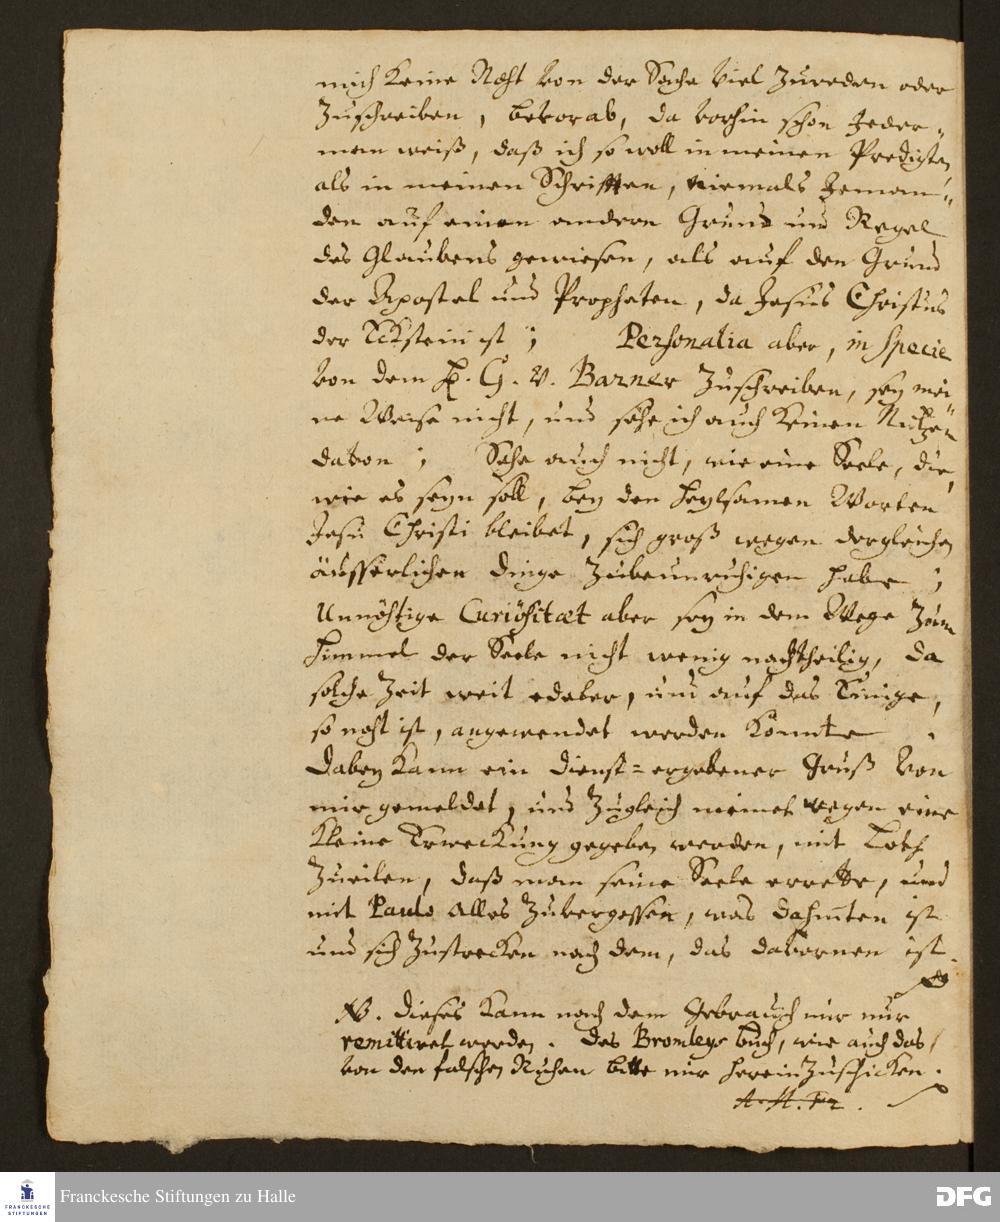 mich keine Noht von der Sache viel zu reden oder
zuschreiben, bevorab, da vorhin schon Jeder-
man weiß, daß ich so woll in meinen Predigten
als in meinen Schrifften, niemals Jeman-
den auf einen andern Grund und Regel
des Glaubens gewiesen, als auf den Grund
der Apostel und Propheten, da Jesus Christus
der Eckstein ist; Personalia aber, in specie
von dem H. G. v. Barner zuschreiben, sey mei-
ne Weise nicht, und sehe ich auch keinen Nutzen
davon; Sehe auch nicht, wie eine Seele, die,
wie es seyn soll, bey den heylsamen Worten
Jesu Christi bleibet, sich groß wegen dergleichen
äusserlichen Dinge zubeunruhigen habe;
Unnöhtige Curiösitæt aber sey in dem Wege zum
Himmel der Seele nicht wenig nachtheilig, da
solche Zeit weit edeler, und auf das Einige,
so noht ist, angewendet werden könnte.
Dabey kann ein dienst-ergebener Gruß von
mir gemeldet, und zugleich meinet wegen eine
kleine Erweckung gegeben werden, mit Loth
zueilen, daß man seine Seele errette, und
mit Paulo alles zuvergessen, was dahinten ist
und sich zustrecken nach dem, das davornen ist.
NB. Dieses kann nach dem Gebrauch mir nur
remittiret werden. Des Bromleys buch, wie auch das
von den falschen Ruhen bitte mir herein zuschicken.
Franckesche Stiftungen zu Halle
FRANCKESCHE
STIFTUNGEN
DFG